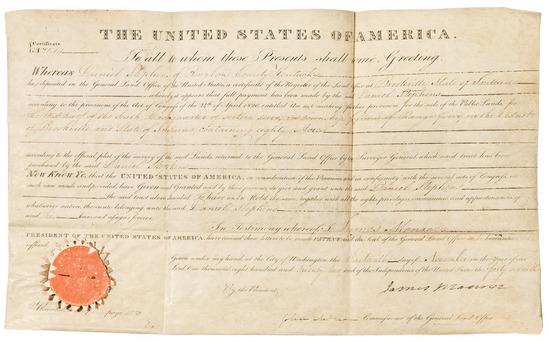 THE UNITED STATES OF AMERICA.
Certificate
To all to whom these Presents shall come, Greeting.
Whereas Daniel Stephens of County
has deposited in the General Land Office of the United States, a certificate of the Register of the Land Office at Brookville State of Indiana
it appears that full payment has been made by the said Daniel Stephens
according to the provisions of the Act of Congress of the 24th of April 1820, entitled An act making further provision for the sale of the Public Lands, for
the West half of the South of Section seven, in Township of Range in the District
of Brookville and State of Indiana, containing eighty Acres
according to the official plat of the survey of the said Lands returned to the General Land Office by the Surveyor General which said tract has been
purchased by the said Daniel Stephens
Now Know Ye, that the UNITED STATES OF AMERICA, in consideration of the Premises, and in conformity with the several acts of Congress, in
such case made and provided, have Given and Granted and by these presents do give and grant unto the said Daniel Stephens
the said tract above described: To have and to Hold the same, together with all the rights, privileges, immunities and appurtenances of
whatsoever nature, thereunto belonging unto the said Daniel Stephens
and assigns forever.
In Testimony whereof I, James Monroe
PRESIDENT OF THE UNITED STATES OF AMERICA, have caused these letters to be made PATENT, and the seal of the General Land Office to be hereunto
Given under my hand at the City of Washington, the day of November in the Year of our
Lord one thousand eight hundred and twenty two and of the Independence of the United States the forty seventh
By the President,
James Monroe
Commissioner of the General Land Office